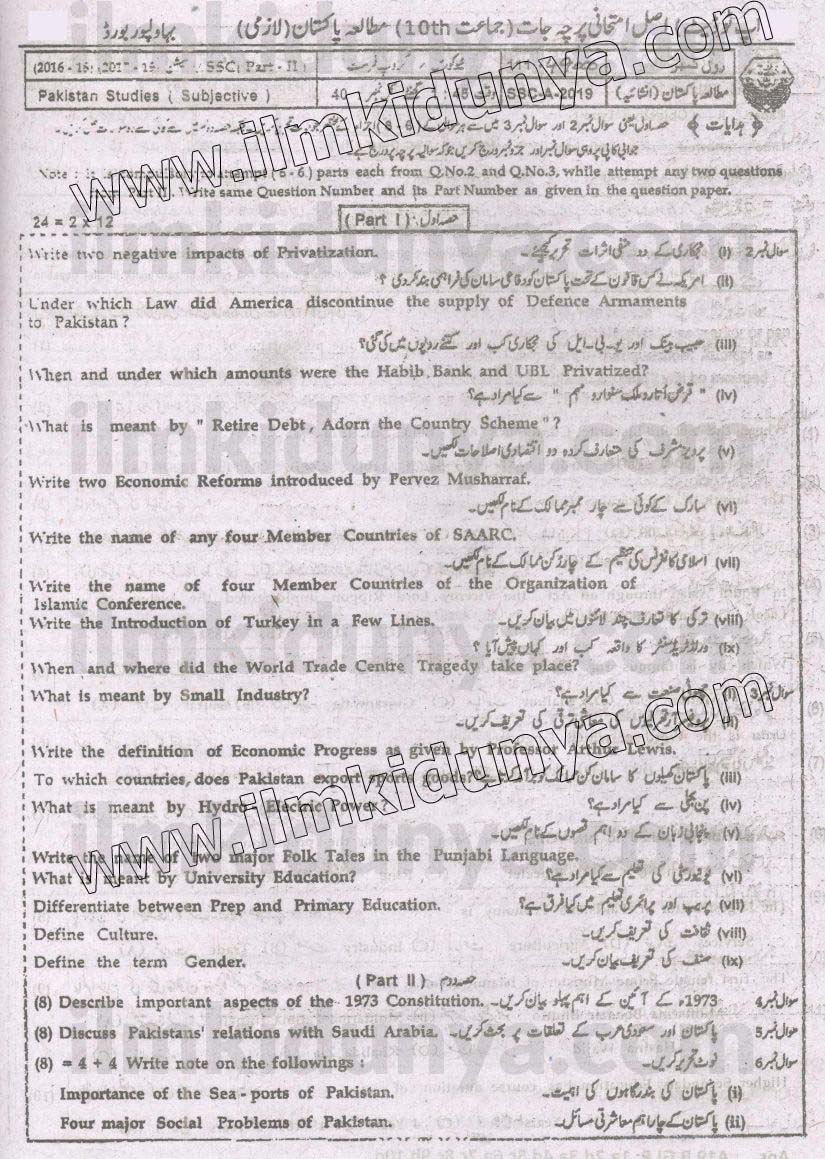 اصل امتحانی پرچہ جات (جماعت 10th) مطالعہ پاکستان (لازمی) بہاولپور بورڈ
رول نمبر
SSC( Part - II )
Pakistan Studies ( Subjective )
40
SSC-A-2019
مطالعہ پاکستان (انشائیہ)
﴿ ہدایات ﴾
parts each from Q.No.2 and Q.No.3, while attempt any two questions
Write same Question Number and its Part Number as given in the question paper.
24 = 2 x 12
(Part I) حصہ اول
Write two negative impacts of Privatization. سوال نمبر 2 (i) نجکاری کے دو منفی اثرات تحریر کیجئے۔
(ii) امریکہ نے کس قانون کے تحت پاکستان کو دفاعی سامان کی فراہمی بند کر دی ؟
Under which Law did America discontinue the supply of Defence Armaments
to Pakistan?
(iii) حبیب بینک اور یو۔بی۔ایل کی نجکاری کب اور کتنے روپوں میں کی گئی؟
When and under which amounts were the Habib Bank and UBL Privatized?
(iv) " قرض اتارو ملک سنوارو مہم " سے کیا مراد ہے؟
What is meant by " Retire Debt, Adorn the Country Scheme"?
(v) پرویز مشرف کی متعارف کردہ دو اقتصادی اصلاحات لکھیں۔
Write two Economic Reforms introduced by Pervez Musharraf.
(vi) سارک کے کوئی سے چار ممبر ممالک کے نام لکھیں۔
Write the name of any four Member Countries of SAARC.
(vii) اسلامی کانفرنس کی تنظیم کے چار رکن ممالک کے نام لکھیں۔
Write the name of four Member Countries of the Organization of
Islamic Conference.
Write the Introduction of Turkey in a Few Lines. (viii) ترکی کا تعارف چند لائنوں میں بیان کریں۔
(ix) ورلڈ ٹریڈ سنٹر کا واقعہ کب اور کہاں پیش آیا ؟
When and where did the World Trade Centre Tragedy take place?
What is meant by Small Industry? سوال نمبر 3 (i) صنعت سے کیا مراد ہے؟
کی معاشی ترقی کی تعریف کریں۔
Write the definition of Economic Progress as given by Professor Arthur Lewis.
To which countries, does Pakistan export sports goods? (iii) پاکستان کھیلوں کا سامان کن ممالک کو
What is meant by Hydro- Electric Power? (iv) پن بجلی سے کیا مراد ہے؟
(v) پنجابی زبان کے دو اہم قصوں کے نام لکھیں۔
Write the name of two major Folk Tales in the Punjabi Language.
What is meant by University Education? (vi) یونیورسٹی کی تعلیم سے کیا مراد ہے؟
Differentiate between Prep and Primary Education. (vii) پریپ اور پرائمری تعلیم میں کیا فرق ہے؟
Define Culture. (viii) ثقافت کی تعریف کریں۔
Define the term Gender. (ix) صنف کی تعریف بیان کریں۔
(Part II) حصہ دوم
(8) Describe important aspects of the 1973 Constitution. سوال نمبر 4 1973ء کے آئین کے اہم پہلو بیان کریں۔
(8) Discuss Pakistans' relations with Saudi Arabia. سوال نمبر 5 پاکستان اور سعودی عرب کے تعلقات پر بحث کریں۔
(8) = 4 + 4 Write note on the followings : سوال نمبر 6 نوٹ تحریر کریں۔
Importance of the Sea - ports of Pakistan. (i) پاکستان کی بندرگاہوں کی اہمیت۔
Four major Social Problems of Pakistan. (ii) پاکستان کے چار اہم معاشرتی مسائل۔
www.ilmkidunya.com
www.ilmkidunya.com